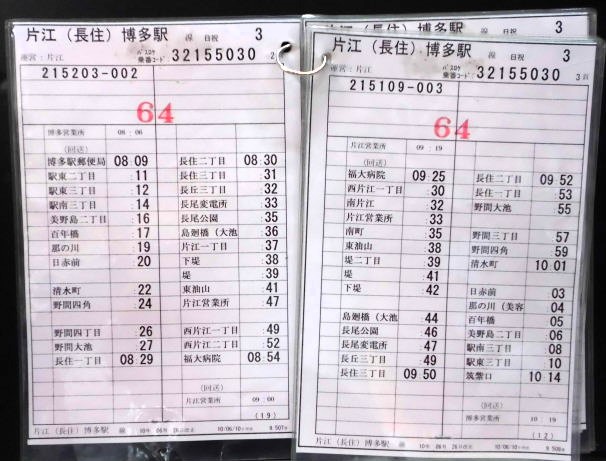 片江（長住）博多駅 線 日祝 3
運営：片江 ﾊﾞｽﾛｹ 乗番ｺｰﾄﾞ 32155030 2
215203-002
64
博多営業所 08：06
(回送)
博多駅郵便局 08 09 長住二丁目 08 30
駅東二丁目 :11 長住三丁目 :31
駅東三丁目 :12 長丘三丁目 :32
駅南三丁目 :14 長尾変電所 :33
美野島二丁目 :16 長尾公園 :35
百年橋 :17 島廻橋（大池 :36
那の川 :19 片江一丁目 :37
日赤前 :20 下堤 :38
堤 :39
清水町 :22 東油山 :41
野間四角 :24 片江営業所 :47
野間四丁目 :26 西片江一丁目 :49
野間大池 :27 西片江二丁目 :52
長住一丁目 08 29 福大病院 08 54
(回送)
片江営業所 09：00
(19)
片江（長住）博多駅 線 10年 06月 26日改正 10/06/10 9.507
3
片江（長住）博多駅 線 日祝 3
運営：片江 ﾊﾞｽﾛｹ 乗番ｺｰﾄﾞ 32155030 3
215109-003
64
片江営業所 09：19
(回送)
福大病院 09 25 長住二丁目 09 52
西片江一丁目 :30 長住一丁目 :53
南片江 :32 野間大池 :55
片江営業所 :33
南町 :35 野間三丁目 :57
東油山 :38 野間四角 :59
堤二丁目 :39 清水町 10 01
堤 :41
下堤 :42 日赤前 :03
那の川（美容 :04
島廻橋（大池 :44 百年橋 :05
長尾公園 :46 美野島二丁目 :06
長尾変電所 :47 駅南三丁目 :08
長丘三丁目 :49 駅東三丁目 :10
長住三丁目 09 50 筑紫口 10 14
(回送)
博多営業所 10：19
(12)
片江（長住）博多駅 線 10年 06月 26日改正 10/06/10 9.508